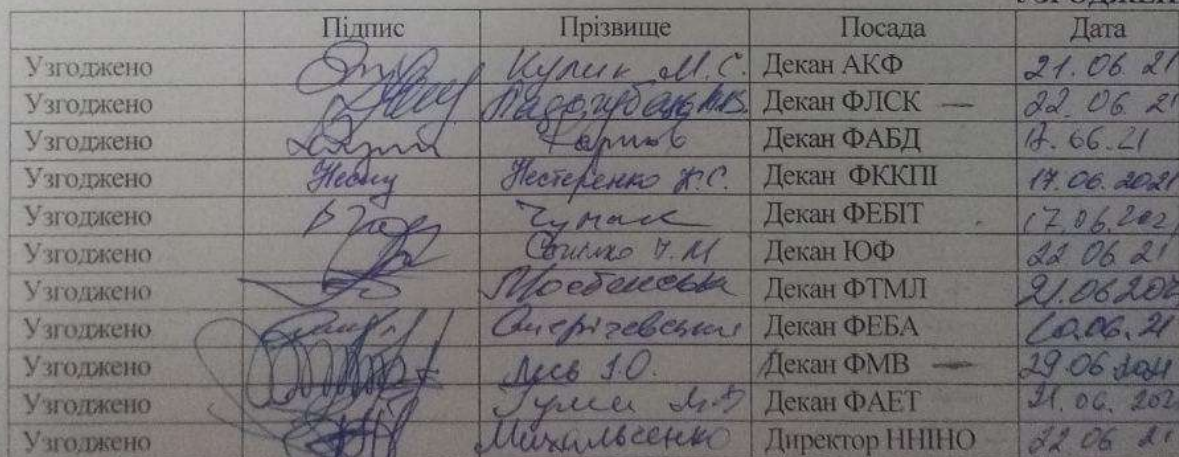 Підпис Прізвище Посада Дата
Узгоджено Кулик М.С. Декан АКФ 21.06.21
Узгоджено Декан ФЛСК — 22.06.21
Узгоджено Декан ФАБД 17.06.21
Узгоджено Нестеренко К.С. Декан ФККПІ 17.06.2021
Узгоджено Чумак Декан ФЕБІТ 17.06.202
Узгоджено Декан ЮФ 22.06.21
Узгоджено Декан ФТМЛ 21.06.202
Узгоджено Смерічевський Декан ФЕБА 06.21
Узгоджено Декан ФМВ — 29.06.2021
Узгоджено Декан ФАЕТ 21.06.202
Узгоджено Михальченко Директор ННІНО 22.06.21